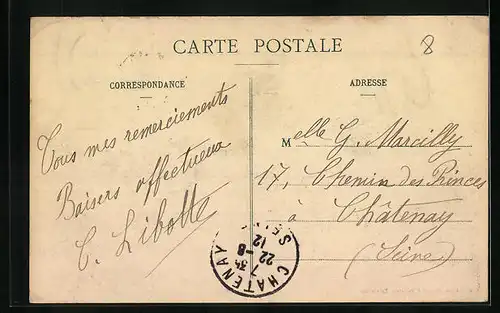 CARTE POSTALE
8
CORRESPONDANCE
ADRESSE
Tous mes remerciements
Baisers affectueux
C. Libotte
Melle G. Marcilly
17, Chemin des Princes
à Châtenay
(Seine)
CHATENAY
7 35
22 - 8
12
SEINE